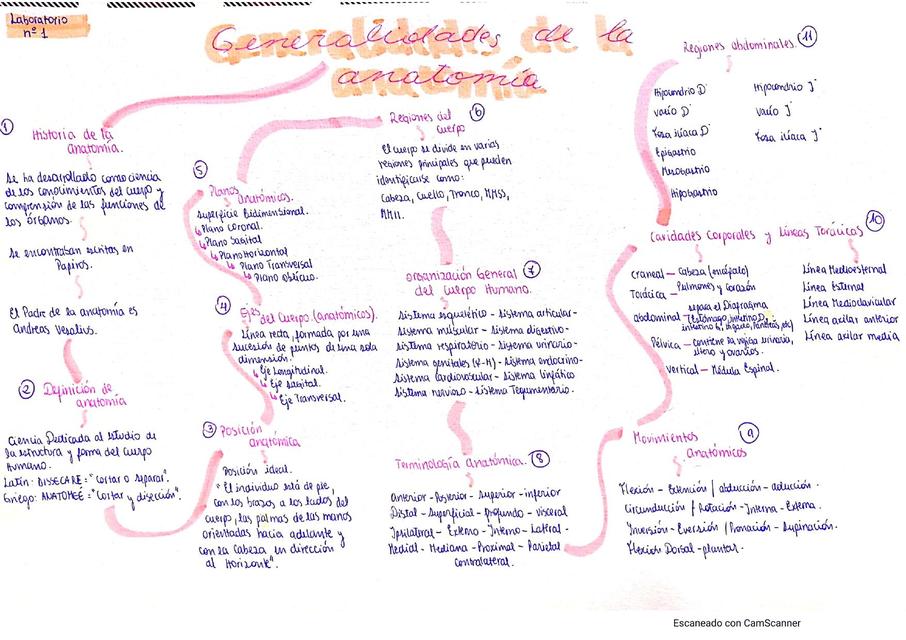 Laboratorio
nº 1
Generalidades de la
anatomía
1
Historia de la
anatomía.
Se ha desarrollado como ciencia
de los conocimientos del cuerpo y
comprensión de las funciones de
los órganos.
Se encontraban escritas en
Papiros.
El Padre de la anatomía es
Andreas Vesalius.
2 Definición de
anatomía
Ciencia Dedicada al estudio de
la estructura y forma del cuerpo
Humano.
Latín: DISSECARE: "Cortar o separar".
Griego: ANATOMEÉ: "Cortar y disección".
3 Posición
anatómica
Posición ideal.
"El individuo está de pie,
con los brazos a los lados del
cuerpo, las palmas de las manos
orientadas hacia adelante y
con la Cabeza en dirección
al Horizonte".
4 Ejes
del Cuerpo (anatómicos).
Línea recta, formada por una
sucesión de puntos de una sola
dimensión.
Eje Longitudinal.
Eje Sagital.
Eje Transversal.
5 Planos
anatómicos.
Superficie Bidimensional.
Plano Coronal.
Plano Sagital
Plano Horizontal
Plano Transversal
Plano Oblicuo.
6
Regiones del
Cuerpo
El cuerpo se divide en varias
regiones principales que pueden
identificarse como:
Cabeza, Cuello, Tronco, MMSS,
MMII.
7
Organización General
del Cuerpo Humano.
Sistema esquelético - Sistema articular-
Sistema muscular - Sistema digestivo-
Sistema respiratorio - Sistema urinario-
Sistema genitales (F-M) - Sistema endocrino-
Sistema cardiovascular - Sistema linfático
Sistema nervioso - Sistema Tegumentario.
Terminología Anatómica. 8
Anterior - Posterior - Superior - inferior
Distal - Superficial - Profundo - visceral
Ipsilateral - Externo - Interno - Lateral -
Medial - Mediana - Proximal - Parietal
Contralateral.
9
Movimientos
Anatómicos
Flexión - Extensión / abducción - aducción.
Circunducción / Rotación - Interna - Externa.
Inversión - Eversión / Pronación - Supinación.
Flexión Dorsal - plantar.
10
Cavidades Corporales y Líneas Torácicas
Craneal - Cabeza (encéfalo)
Torácica - Pulmones y corazón
separa el Diafragma
abdominal - (Estómago, intestino D,
intestino G, hígado, Páncreas, etc)
Pélvica - contiene la vejiga urinaria,
útero y ovarios.
Vertical - Médula Espinal.
Línea Medioesternal
Línea Esternal
Línea Medioclavicular
Línea axilar anterior
Línea axilar media
Regiones abdominales. 11
Hipocondrio D
Vacío D
Fosa ilíaca D
Epigastrio
Mesogastrio
Hipogastrio
Hipocondrio I
Vacío I
Fosa ilíaca I
Escaneado con CamScanner